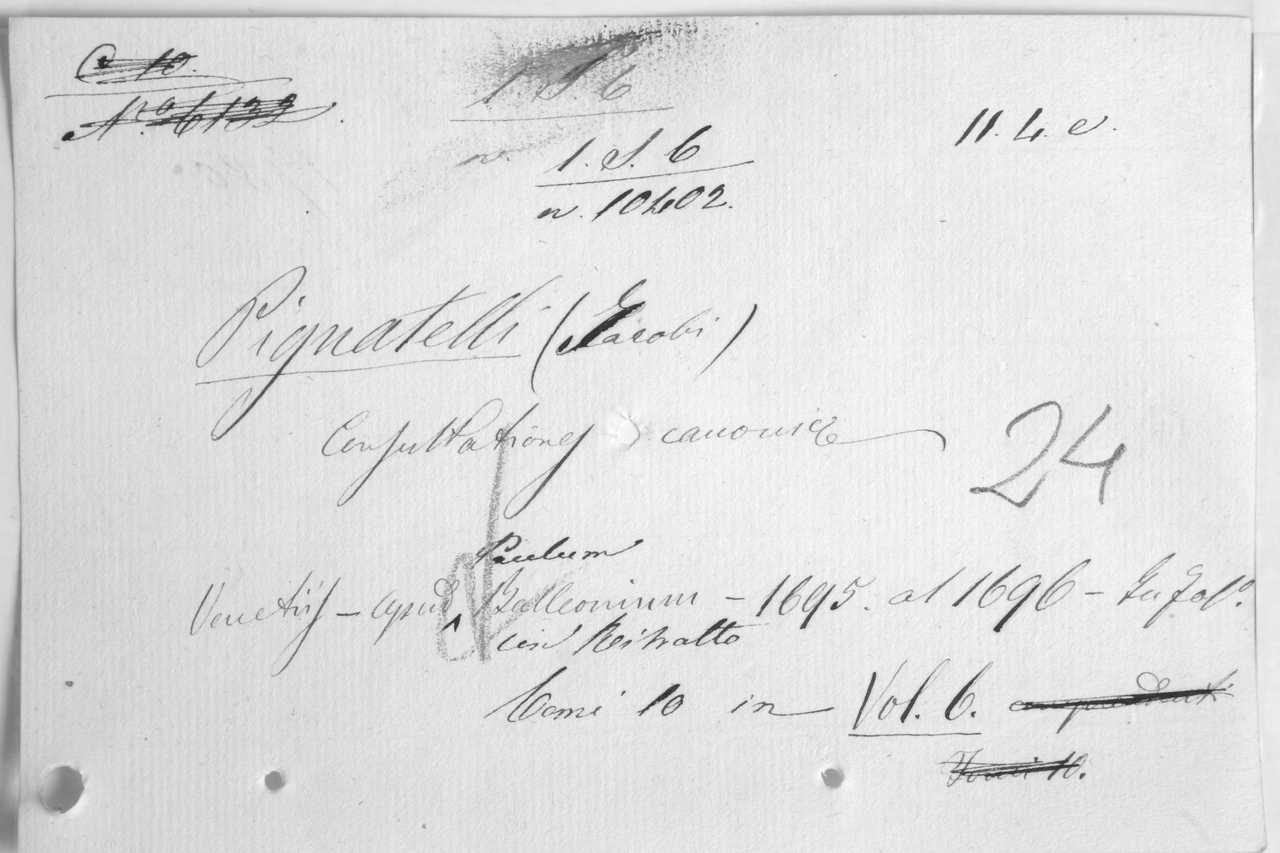 C 10.
N.º 6132.
1 S. 6
11. 4. e.
n. 1. S. 6
n. 10402.
Pignatelli (Jacobi)
Consultationes canonicæ
24
Paulum
Venetiis – apud Balleonium – 1695. al 1696 – In fol.º
con Ritratto
Tomi 10 in Vol. 6.
Tomi 10.